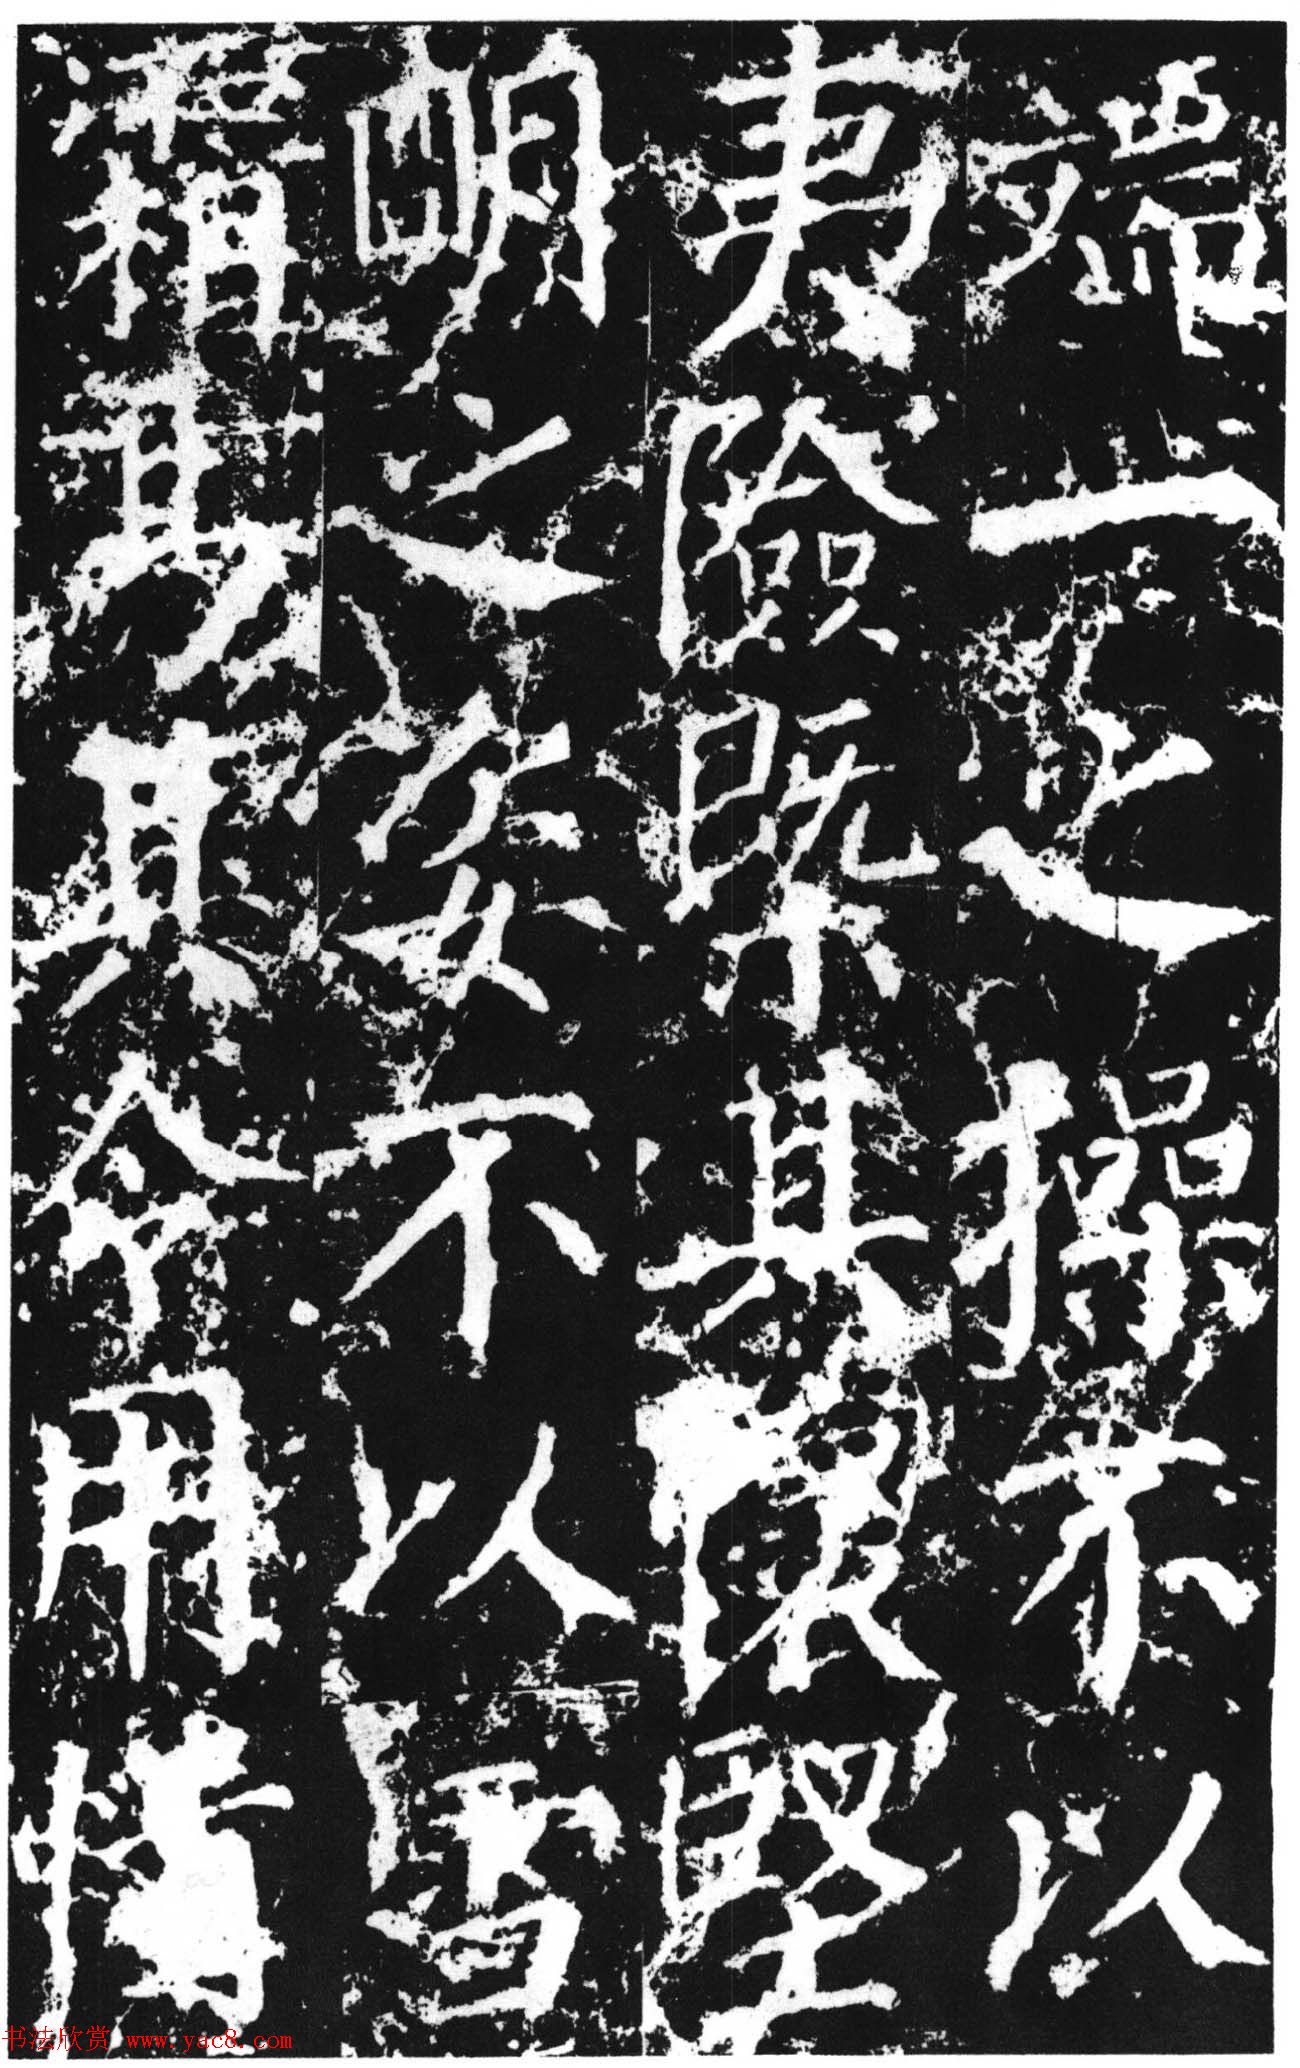 端一之操不以
夷險槩其懷堅
明之姿不以雪
霜易其令用情
书法欣赏 www.yac8.com